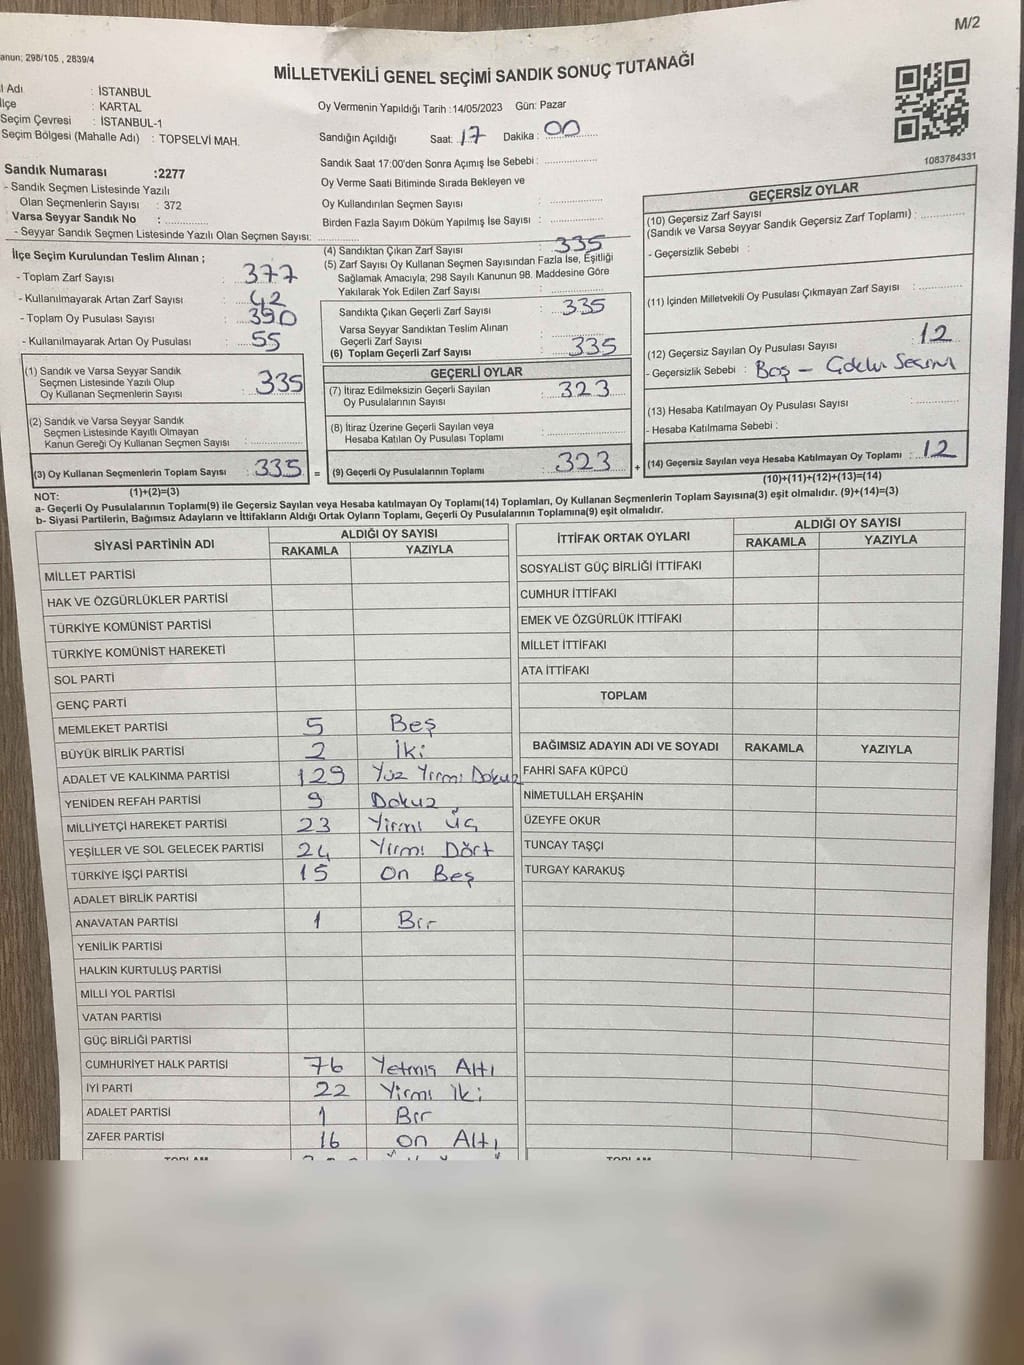 M/2
anun; 298/105 , 2839/4
MİLLETVEKİLİ GENEL SEÇİMİ SANDIK SONUÇ TUTANAĞI
l Adı : İSTANBUL
lçe : KARTAL
Seçim Çevresi : İSTANBUL-1
Seçim Bölgesi (Mahalle Adı) : TOPSELVİ MAH.
Oy Vermenin Yapıldığı Tarih :14/05/2023 Gün: Pazar
Sandığın Açıldığı Saat: 17 Dakika : 00
Sandık Saat 17:00'den Sonra Açımış İse Sebebi :
Oy Verme Saati Bitiminde Sırada Bekleyen ve
Oy Kullandırılan Seçmen Sayısı :
Birden Fazla Sayım Döküm Yapılmış İse Sayısı :
1083784331
Sandık Numarası :2277
- Sandık Seçmen Listesinde Yazılı
Olan Seçmenlerin Sayısı : 372
Varsa Seyyar Sandık No :
- Seyyar Sandık Seçmen Listesinde Yazılı Olan Seçmen Sayısı:
İlçe Seçim Kurulundan Teslim Alınan ;
- Toplam Zarf Sayısı : 377
- Kullanılmayarak Artan Zarf Sayısı : 42
- Toplam Oy Pusulası Sayısı : 390
- Kullanılmayarak Artan Oy Pusulası : 55
(1) Sandık ve Varsa Seyyar Sandık
Seçmen Listesinde Yazılı Olup
Oy Kullanan Seçmenlerin Sayısı : 335
(2) Sandık ve Varsa Seyyar Sandık
Seçmen Listesinde Kayıtlı Olmayan
Kanun Gereği Oy Kullanan Seçmen Sayısı :
(3) Oy Kullanan Seçmenlerin Toplam Sayısı : 335
(1)+(2)=(3)
(4) Sandıktan Çıkan Zarf Sayısı : 335
(5) Zarf Sayısı Oy Kullanan Seçmen Sayısından Fazla İse, Eşitliği
Sağlamak Amacıyla, 298 Sayılı Kanunun 98. Maddesine Göre
Yakılarak Yok Edilen Zarf Sayısı :
Sandıkta Çıkan Geçerli Zarf Sayısı : 335
Varsa Seyyar Sandıktan Teslim Alınan
Geçerli Zarf Sayısı :
(6) Toplam Geçerli Zarf Sayısı : 335
GEÇERLİ OYLAR
(7) İtiraz Edilmeksizin Geçerli Sayılan
Oy Pusulalarının Sayısı : 323
(8) İtiraz Üzerine Geçerli Sayılan veya
Hesaba Katılan Oy Pusulası Toplamı :
= (9) Geçerli Oy Pusulalarının Toplamı : 323
GEÇERSİZ OYLAR
(10) Geçersiz Zarf Sayısı
(Sandık ve Varsa Seyyar Sandık Geçersiz Zarf Toplamı) :
- Geçersizlik Sebebi :
(11) İçinden Milletvekili Oy Pusulası Çıkmayan Zarf Sayısı :
(12) Geçersiz Sayılan Oy Pusulası Sayısı : 12
- Geçersizlik Sebebi : Boş -
(13) Hesaba Katılmayan Oy Pusulası Sayısı :
- Hesaba Katılmama Sebebi :
+ (14) Geçersiz Sayılan veya Hesaba Katılmayan Oy Toplamı : 12
(10)+(11)+(12)+(13)=(14)
NOT:
a- Geçerli Oy Pusulalarının Toplamı(9) ile Geçersiz Sayılan veya Hesaba katılmayan Oy Toplamı(14) Toplamları, Oy Kullanan Seçmenlerin Toplam Sayısına(3) eşit olmalıdır. (9)+(14)=(3)
b- Siyasi Partilerin, Bağımsız Adayların ve İttifakların Aldığı Oy Ortak Oyların Toplamı, Geçerli Oy Pusulalarının Toplamına(9) eşit olmalıdır.
SİYASİ PARTİNİN ADI ALDIĞI OY SAYISI
RAKAMLA YAZIYLA
MİLLET PARTİSİ
HAK VE ÖZGÜRLÜKLER PARTİSİ
TÜRKİYE KOMÜNİST PARTİSİ
TÜRKİYE KOMÜNİST HAREKETİ
SOL PARTİ
GENÇ PARTİ
MEMLEKET PARTİSİ 5 Beş
BÜYÜK BİRLİK PARTİSİ 2 İki
ADALET VE KALKINMA PARTİSİ 129 Yüz Yirmi Dokuz
YENİDEN REFAH PARTİSİ 9 Dokuz
MİLLİYETÇİ HAREKET PARTİSİ 23 Yirmi Üç
YEŞİLLER VE SOL GELECEK PARTİSİ 24 Yirmi Dört
TÜRKİYE İŞÇİ PARTİSİ 15 On Beş
ADALET BİRLİK PARTİSİ
ANAVATAN PARTİSİ 1 Bir
YENİLİK PARTİSİ
HALKIN KURTULUŞ PARTİSİ
MİLLİ YOL PARTİSİ
VATAN PARTİSİ
GÜÇ BİRLİĞİ PARTİSİ
CUMHURİYET HALK PARTİSİ 76 Yetmiş Altı
İYİ PARTİ 22 Yirmi İki
ADALET PARTİSİ 1 Bir
ZAFER PARTİSİ 16 On Altı
TOPLAM
İTTİFAK ORTAK OYLARI ALDIĞI OY SAYISI
RAKAMLA YAZIYLA
SOSYALİST GÜÇ BİRLİĞİ İTTİFAKI
CUMHUR İTTİFAKI
EMEK VE ÖZGÜRLÜK İTTİFAKI
MİLLET İTTİFAKI
ATA İTTİFAKI
TOPLAM
BAĞIMSIZ ADAYIN ADI VE SOYADI RAKAMLA YAZIYLA
FAHRİ SAFA KÜPCÜ
NİMETULLAH ERŞAHİN
ÜZEYFE OKUR
TUNCAY TAŞÇI
TURGAY KARAKUŞ
TOPLAM